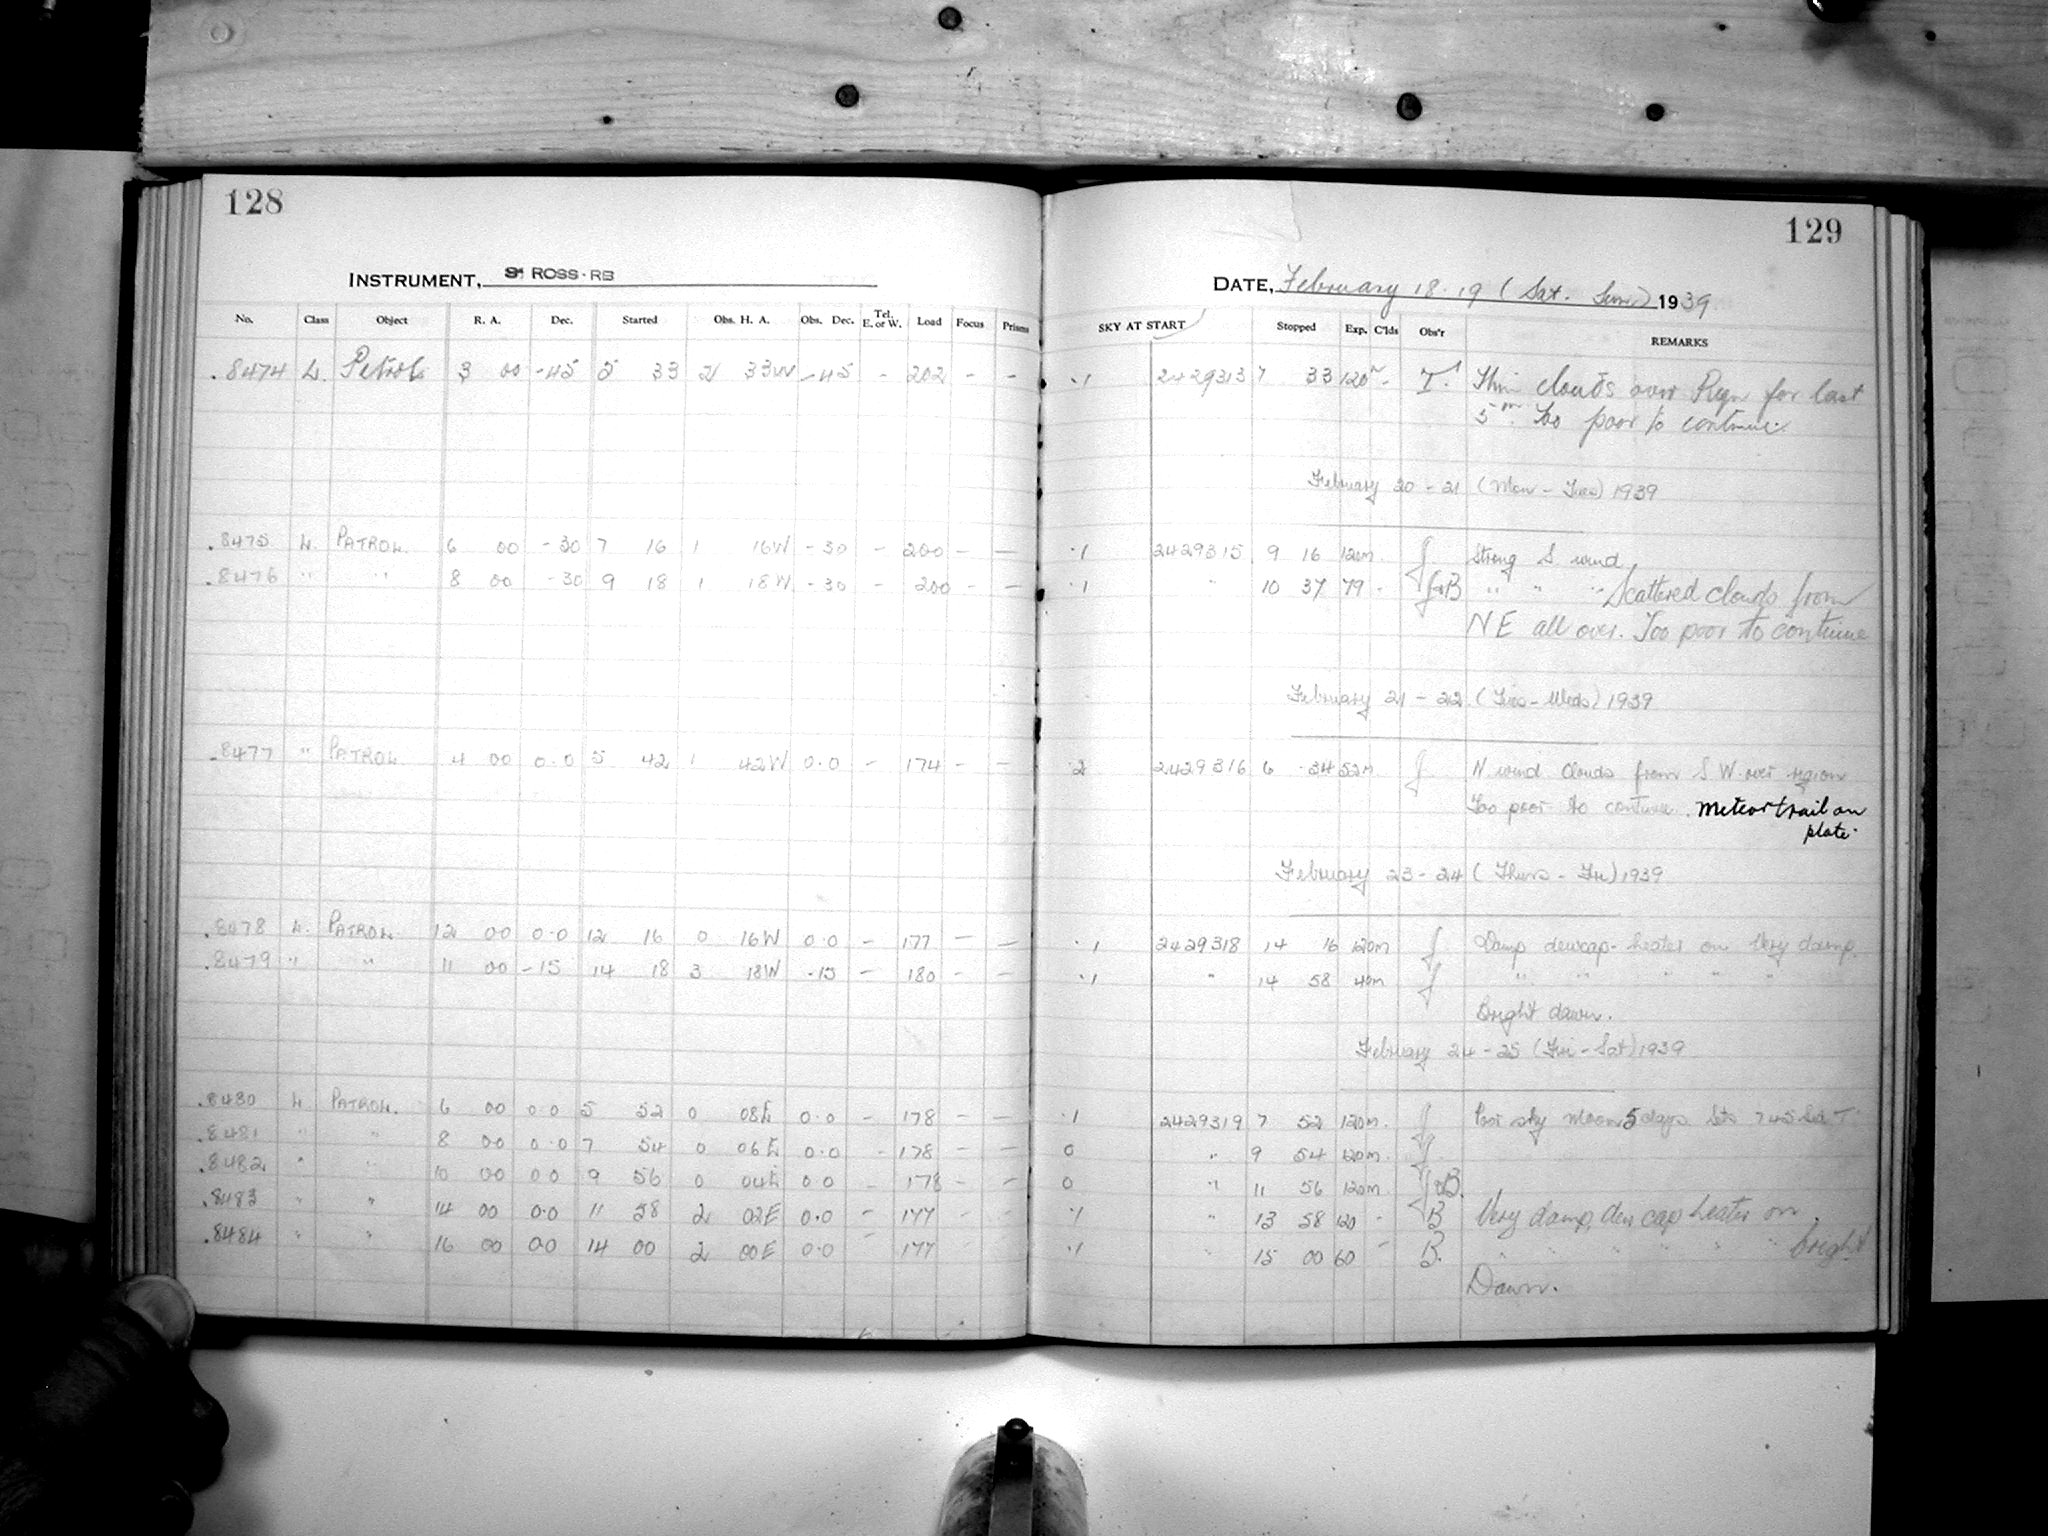 128
INSTRUMENT, ROSS-RB
No. Class Object R. A. Dec. Started Obs. H. A. Obs. Dec. Tel. E. or W. Load Focus Prisms
.8474 L. Patrol 3 00 -45 5 33 2 33W -45 - 202 - -
.8475 L. PATROL 6 00 -30 7 16 1 16W -30 - 200 - -
.8476 " " 8 00 -30 9 18 1 18W -30 - 200 - -
.8477 " PATROL 4 00 0.0 5 42 1 42W 0.0 - 174 - -
.8478 L. PATROL 12 00 0.0 12 16 0 16W 0.0 - 177 - -
.8479 " " 11 00 -15 14 18 3 18W -15 - 180 - -
.8480 L. PATROL. 6 00 0.0 5 52 0 08E 0.0 - 178 - -
.8481 " " 8 00 0.0 7 54 0 06E 0.0 - 178 - -
.8482 " " 10 00 0.0 9 56 0 04E 0.0 - 178 - -
.8483 " " 14 00 0.0 11 58 2 02E 0.0 - 177 - -
.8484 " " 16 00 00 14 00 2 00E 0.0 - 177
129
DATE, February 18-19 (Sat. Sun) 1939
SKY AT START Stopped Exp. C'lds Obs'r REMARKS
.1 2429313 7 33 120m - T. Thin clouds over Regn for last
5m. Too poor to continue.
February 20-21 (Mon-Tues) 1939
.1 2429315 9 16 120m. J Strong S wind
.1 " 10 37 79 - J&B " " " Scattered clouds from
NE all over. Too poor to continue
February 21-22 (Tues-Weds) 1939
.2 2429316 6 34 52m J N. wind Clouds from S W. over region
Too poor to continue. Meteor trail on
plate.
February 23-24 (Thurs-Fri) 1939
.1 2429318 14 16 120m J Damp dewcap-heater on Very damp.
.1 " 14 58 40m J " " " " "
Bright dawn.
February 24-25 (Fri-Sat) 1939
.1 2429319 7 52 120m. J Poor sky Moon 5 days. Sts 745 Sd T
0 " 9 54 120m. J
0 " 11 56 120m J&B.
.1 " 13 58 120 - B Very damp, dew cap heater on.
.1 " 15 00 60 - B. " " " " " bright
Dawn.